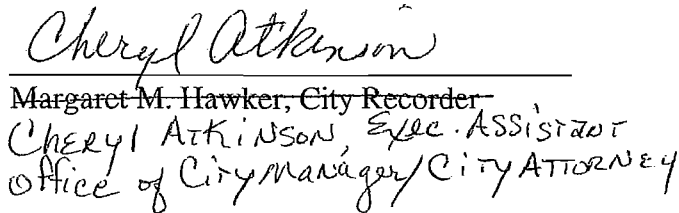 Cheryl Atkinson
Margaret M. Hawker, City Recorder
Cheryl Atkinson, Exec. Assistant
Office of City Manager/City Attorney